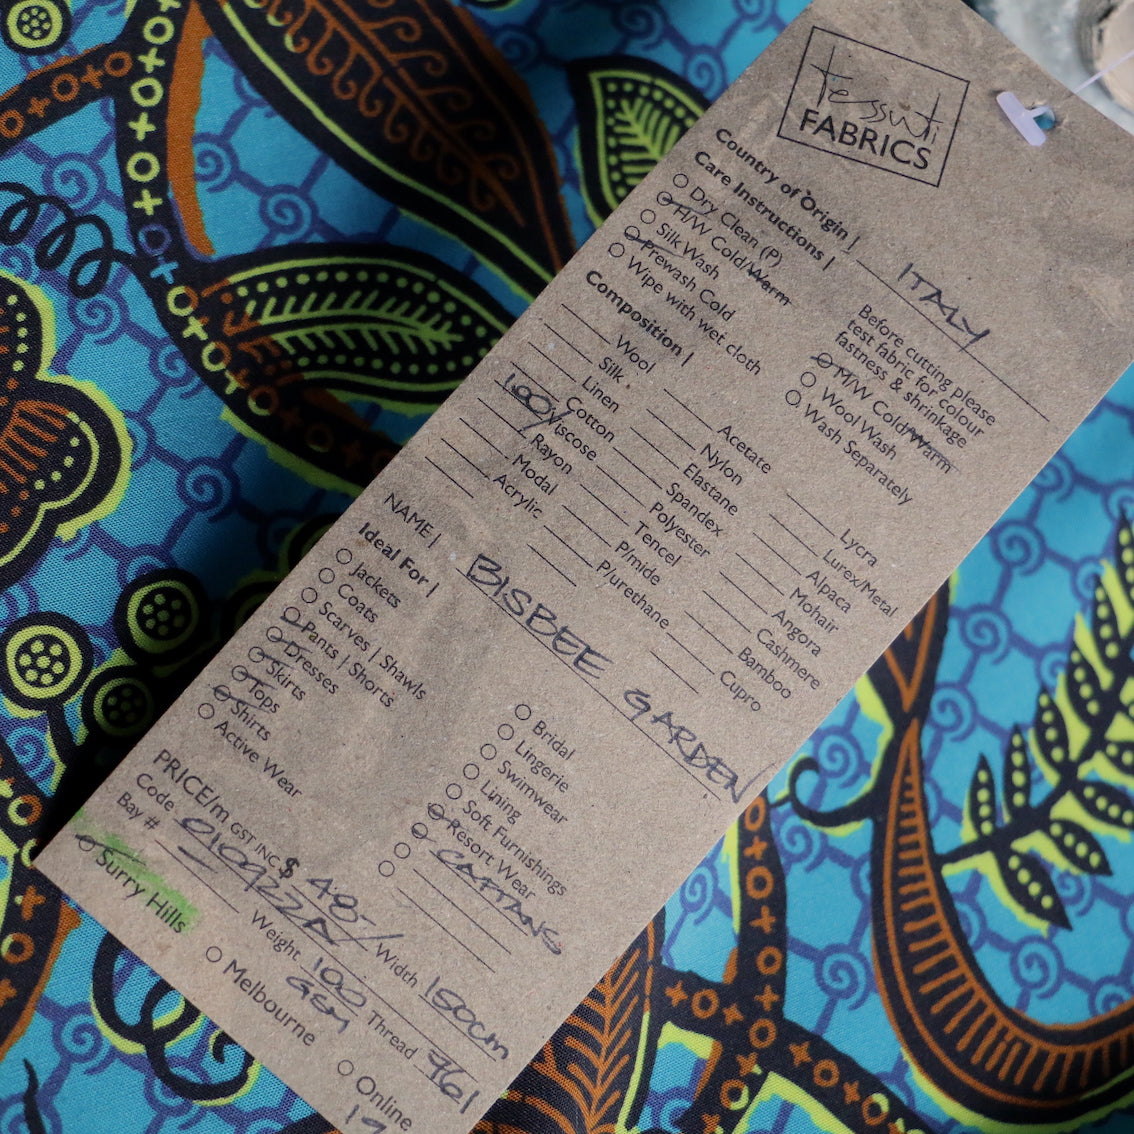 tessuti
FABRICS
Country of Origin | ITALY
Care Instructions |
Dry Clean (P)
H/W Cold/Warm
Silk Wash
Prewash Cold
Wipe with wet cloth
Before cutting please
test fabric for colour
fastness & shrinkage
M/W Cold/Warm
Wool Wash
Wash Separately
Composition |
Wool
Silk
Linen
100% Cotton
Viscose
Rayon
Modal
Acrylic
Acetate
Nylon
Elastane
Spandex
Polyester
Tencel
P/mide
P/urethane
Lycra
Lurex/Metal
Alpaca
Mohair
Angora
Cashmere
Bamboo
Cupro
NAME | BISBEE GARDEN
Ideal For |
Jackets
Coats
Scarves | Shawls
Pants | Shorts
Dresses
Skirts
Tops
Shirts
Active Wear
Bridal
Lingerie
Swimwear
Lining
Soft Furnishings
Resort Wear
CAFTANS
PRICE/m GST INC. $ 48- Width 150cm
Code Weight 100 GSM Thread 761
Bay #
Surry Hills
Melbourne
Online